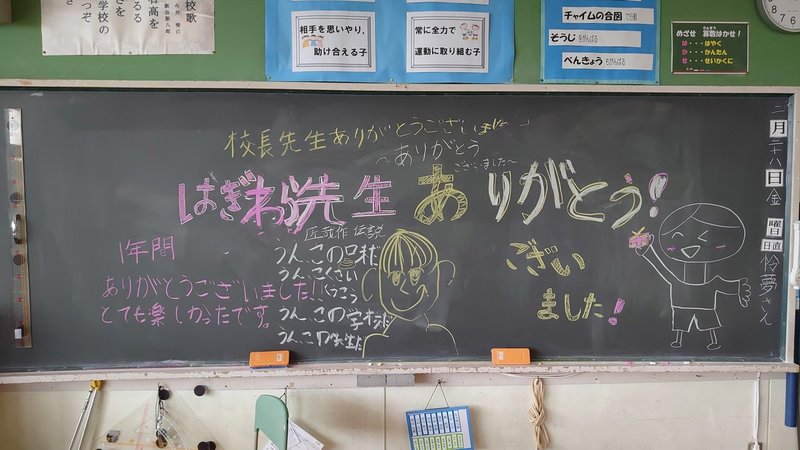 校歌
相手を思いやり、
助け合える子
常に全力で
運動に取り組む子
チャイムの合図で行動
そうじをがんばる
べんきょうをがんばる
めざせ 算数はかせ!
は・・・はやく
か・・・かんたん
せ・・・せいかくに
校長先生ありがとうございました
~ありがとう
ございました~
はぎわら先生 ありがとう!
ござい
ました!
1年間
ありがとうございました!!
とても楽しかったです。
伝説
うんこの
うんこくさい
うんこの学校
うんこの先生
二月二十八日金曜日
日直
さん